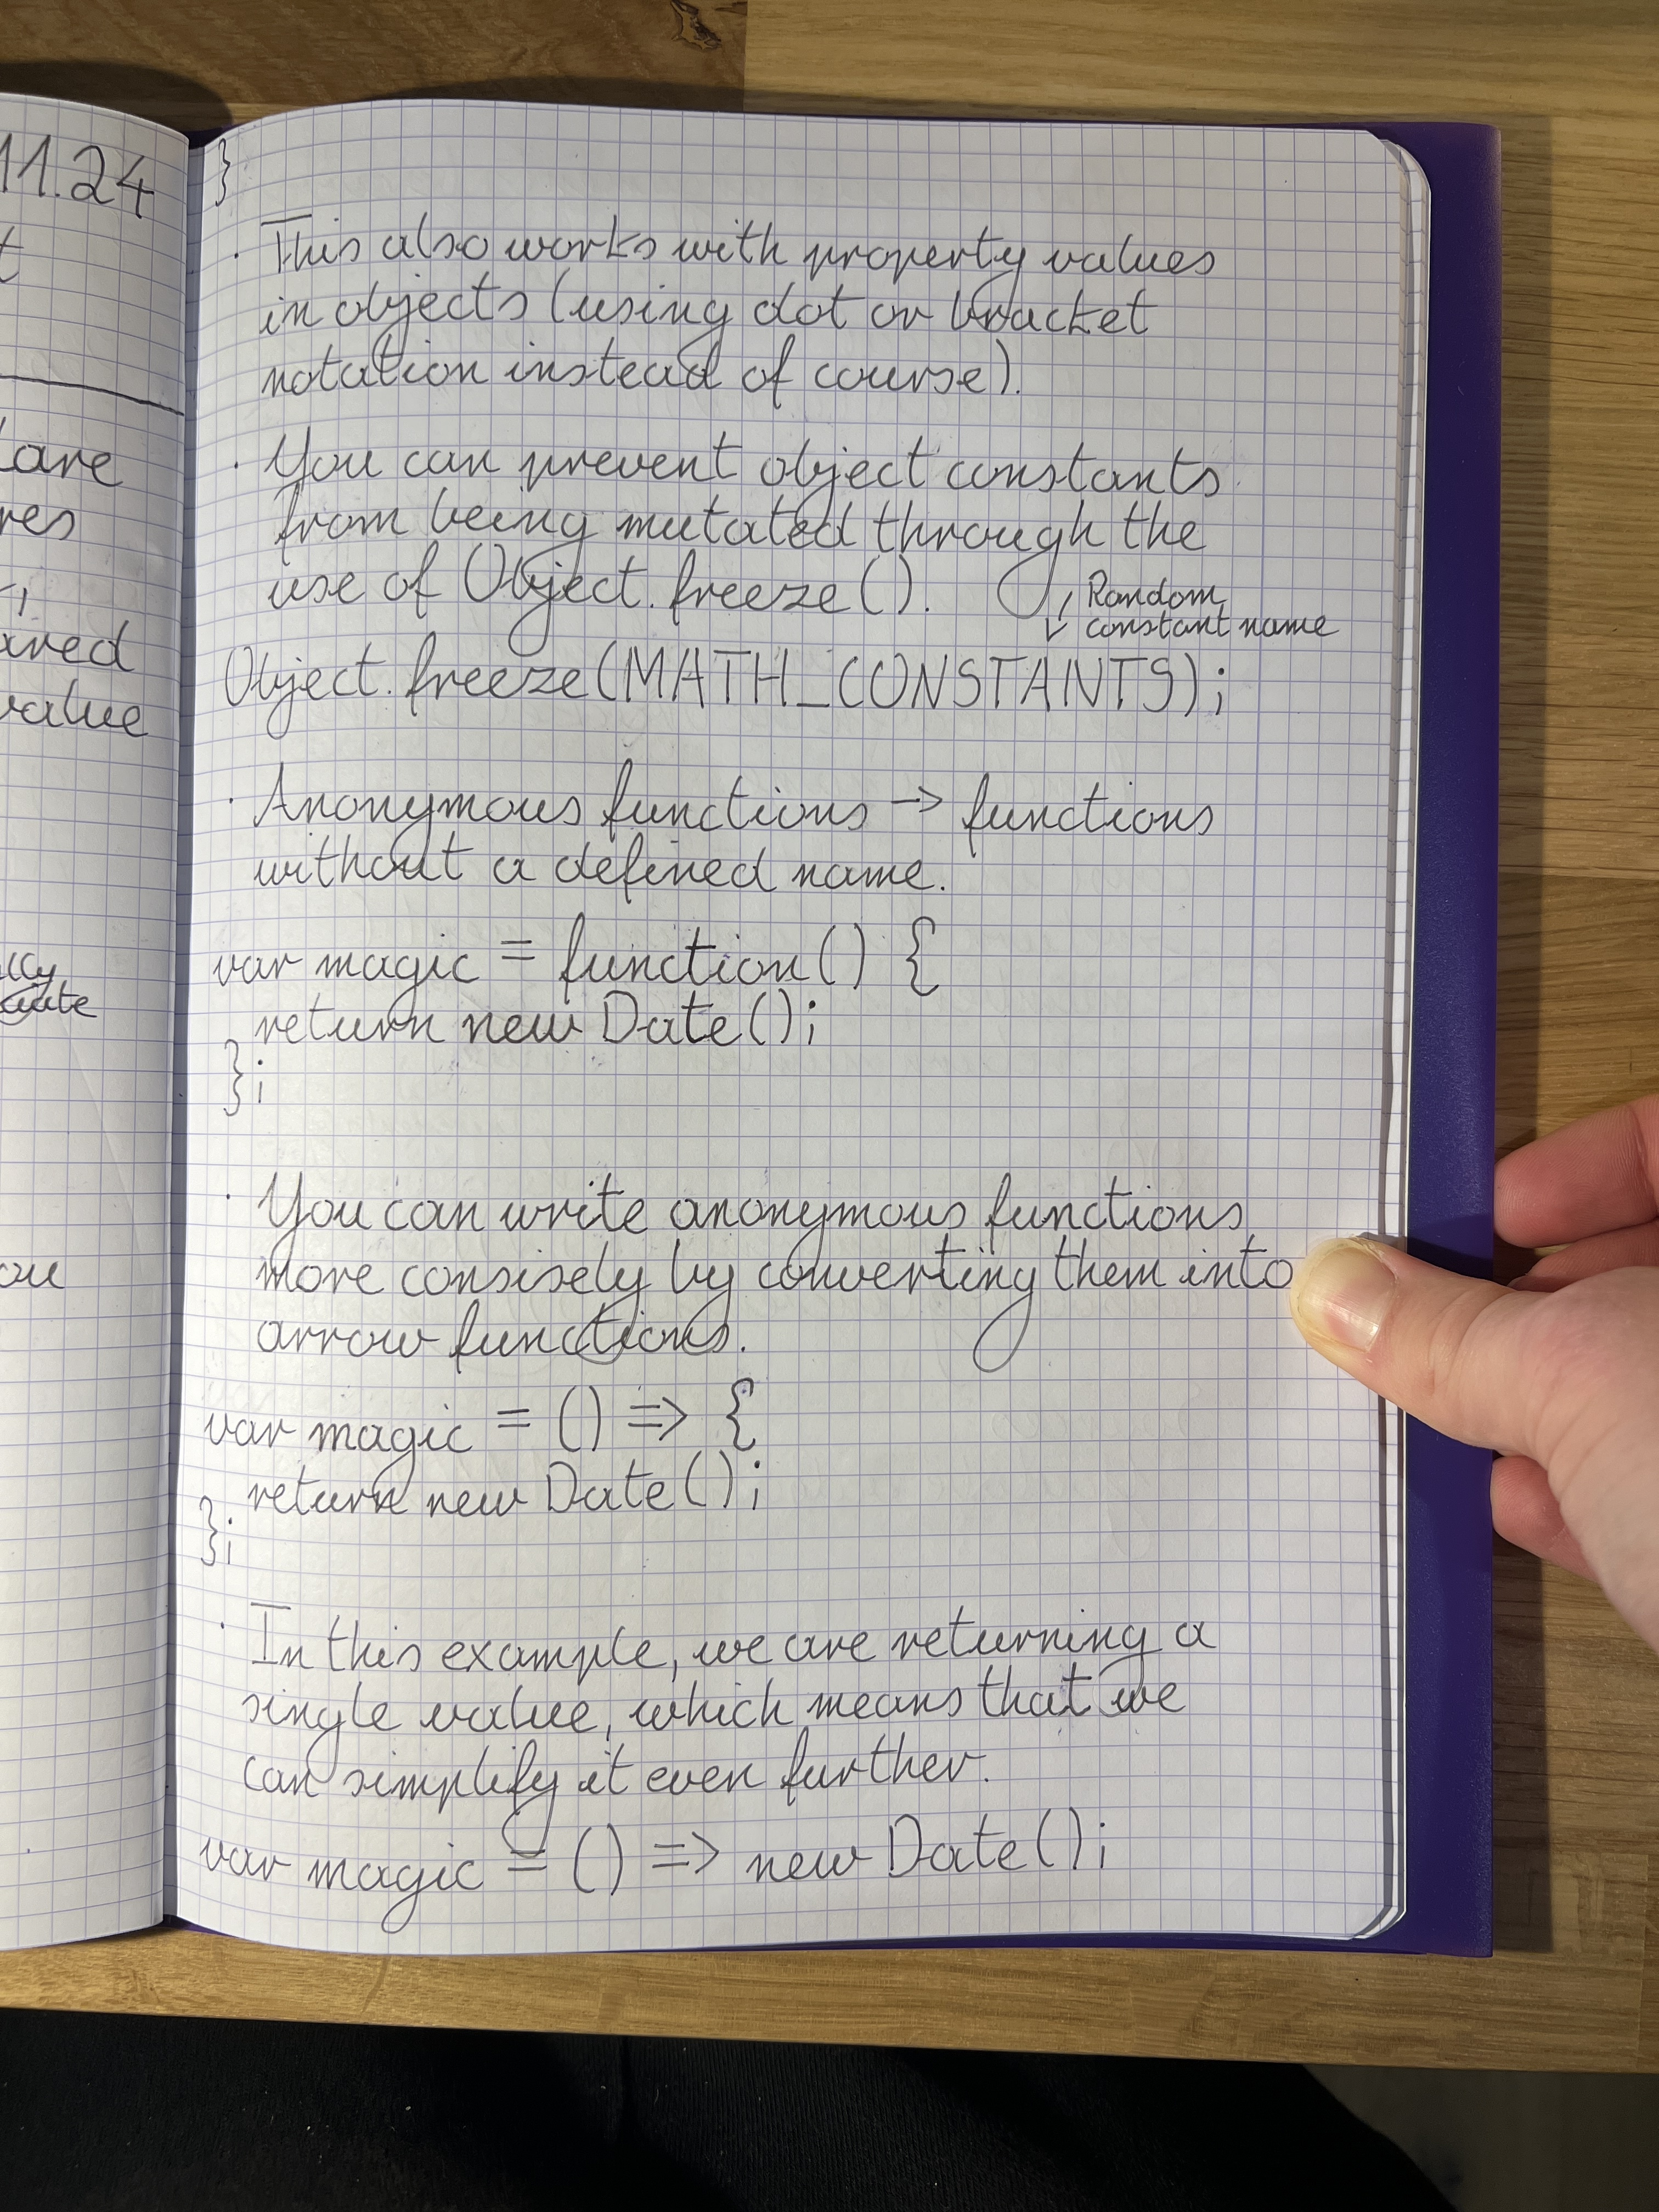 11.24
t
are
res
ared
value
ou
}
· This also works with property values
in objects (using dot or bracket
notation instead of course).
· You can prevent object constants
from being mutated through the
use of Object.freeze().
Random
constant name
Object.freeze(MATH_CONSTANTS);
· Anonymous functions -> functions
without a defined name.
var magic = function() {
return new Date();
};
· You can write anonymous functions
more consisely by converting them into
arrow functions.
var magic = () => {
return new Date();
};
· In this example, we are returning a
single value, which means that we
can simplify it even further.
var magic = () => new Date();